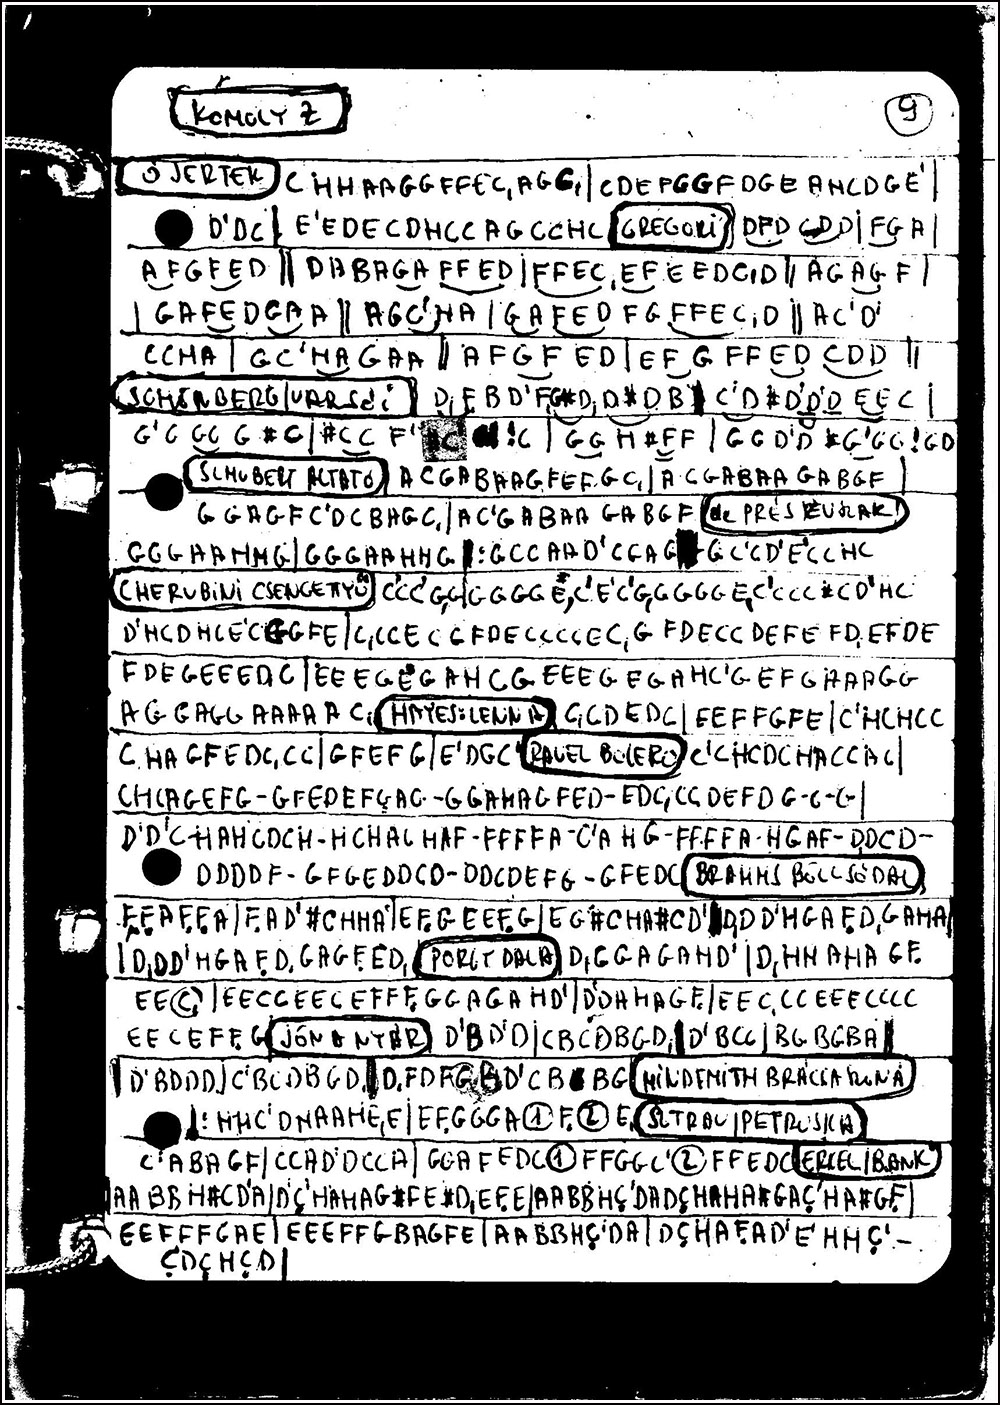 KOMOLY Z
9
Ó JERTEK CHHAAGGFFEC,AGG,|CDEFGGFDGEAHCDGE'|
D'DC|E'EDECDHCCAGCCHC GREGORI DFD CDD|FGA|
AFGFED||DABAGAFFED|FFEC,EFEEDC,D||AGAGF|
|GAFEDGAA||AGC'HA|GAFEDFGFFEC,D||AC'D'
CCHA|GC'HAGAA||AFGFED|EFGFFEDCDD||
SCHÖNBERG|VARSÓI D,FBD'FG#D,D#DB|C'D#D'D'DEEC|
G'GGGG#G|#CCF' !C|GGH#FF|GGD'D#G'GG!GD
SCHUBERT ALTATÓ ACGABAAGFEFGC,|ACGABAAGABGF|
GGAGFC'DCBAGC,|AC'GABAAGABGF de PRES
GGGAAHHG|GGGAAHHG|:GCCAAD'CCAG GC'CD'E'CCHC
CHERUBINI CSENGETTYŰ CCC'G,G|GGGGE,C'E'C'G,GGGGGE,C'CCC#CD'HC
D'HCDHCE'CGGFE|C,CCECCGFDECCCCEC,GFDECCDEFEFD,EFDE
FDEGEEEDC|EEEGEGAHCGEEEGEGAHC'GEFGAAAGG
AGGAGGAAAAAC, HAYES:LENNA C,CDEDC|EEFFGFE|C'HCHCC
CHAGFEDC,CC|GFEFG|E'DGC' RAVEL BOLERO C'CHCDCHACCAC|
CHCAGEFG-GFEDEFGAG-GGAHAGFED-EDC,CCDEFDG-G-G|
D'D'C-HAHCDCH-HCHACHAF-FFFFA-C'AHG-FFFFA-HGAF-DDCD-
DDDDF-GFGEDDCD-DDCDEFG-GFEDC BRAHMS BÖLCSŐDAL
F,F,AF,F,A|F,AD'#CHHA'|EF,GEEF,G|EG#CHA#CD'|D,DD'HGAF,D,GAHA|
|D,DD'HGAF,D,GAGF,ED, PORGY DALA D,GGAGAHD'|D,HHAHAGF,
EEC|EECCEECEFFF,GGAGAHD'|D'DAHAGF,|EEC,CCEEECCCC
EECEFF,G JÖN A NYÁR D'BD'D|CBCDBGD,|D'BCC|BGBGBA|
|D'BDDD,|C'BCDBGD,|D,FDFGBD'CB BG HINDEMITH BRÁCCA SONÁ
|:HHC'DHAAHE,E|EF,GGGA①F,②E, SZTRAV|PETRUSKA
C'ABAGF|CCAD'DCCA|GGAFEDC①FFGGC'②FFEDC ERKEL|BÁNK
AABBH#CD'A|DÇ'HAHAG#FE#D,EFE|AABBHÇ'DADÇHAHA#GAÇ'HA#GF|
EEFFFGAE|EEEFFGBAGFE|AABBHÇ'DA|DÇHAF,AD'E'HHÇ'-
ÇDÇHÇD|